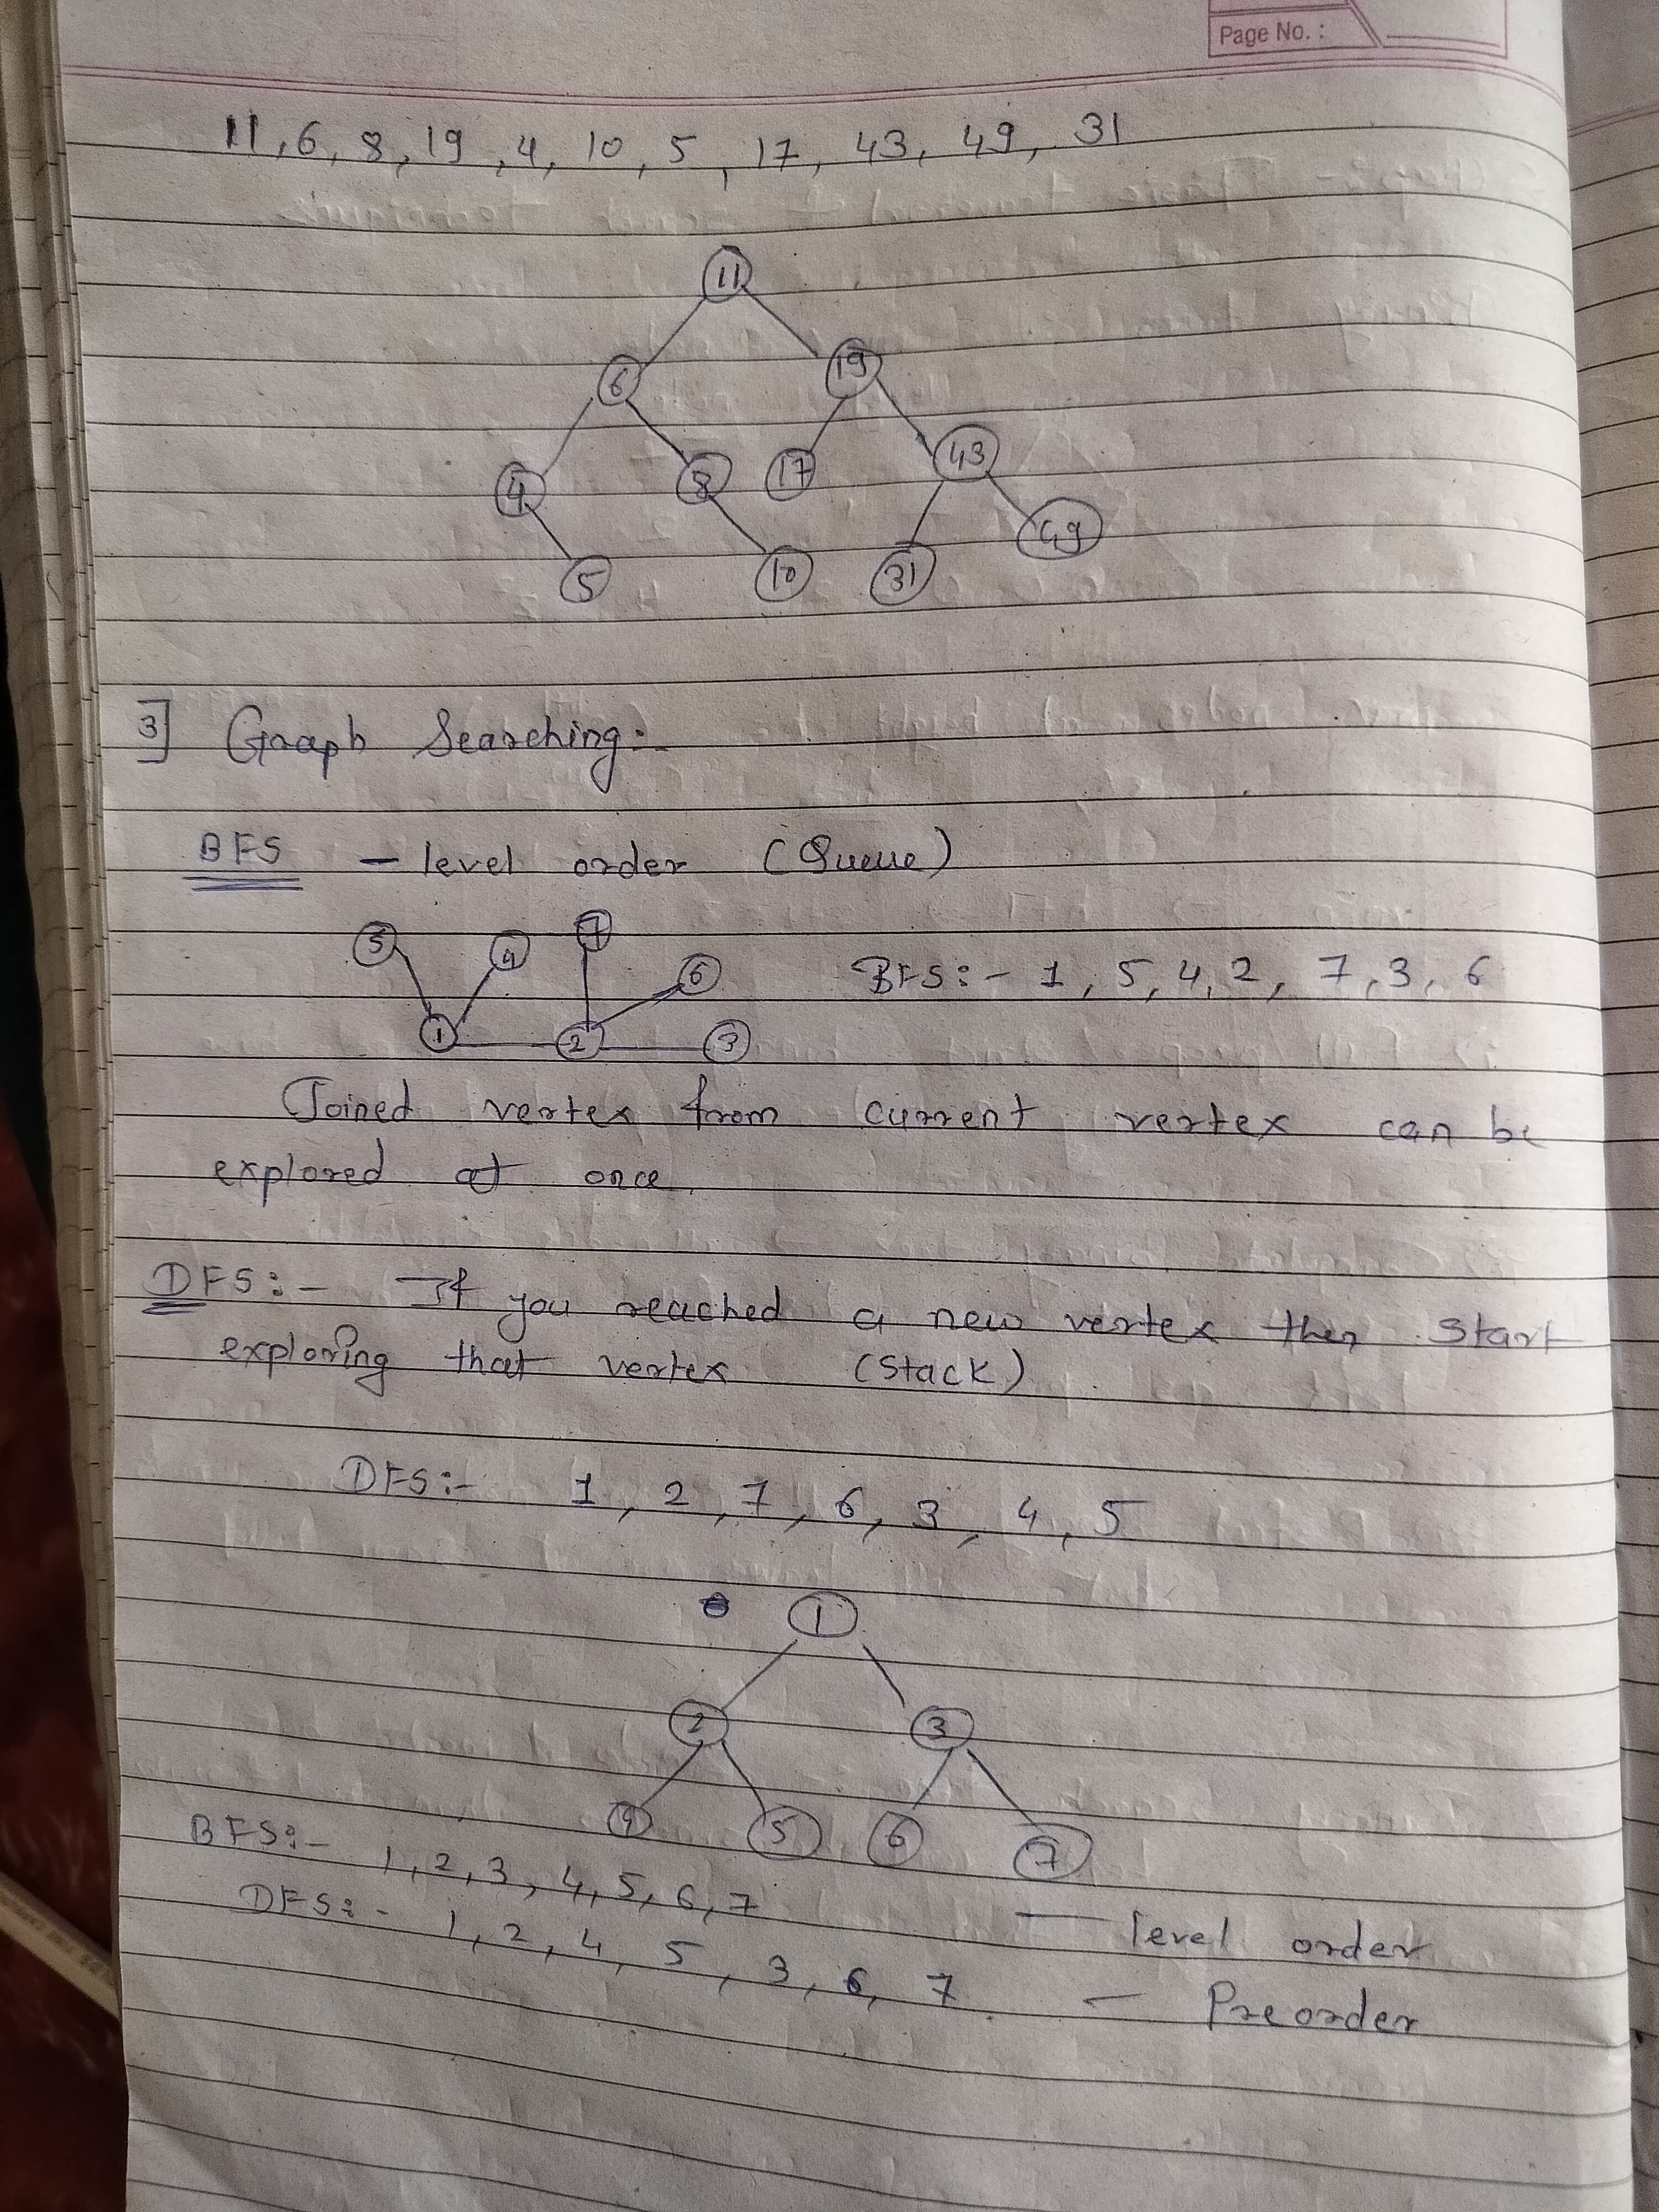 Page No. :
11, 6, 8, 19, 4, 10, 5, 17, 43, 49, 31
11
6 19
4 8 17 43
5 10 31 49
3] Graph Searching:-
BFS - level order (Queue)
5 4 7
6 BFS:- 1, 5, 4, 2, 7, 3, 6
1 2 3
Joined vertex from current vertex can be
explored at once.
DFS:- If you reached a new vertex then start
exploring that vertex (Stack)
DFS:- 1, 2, 7, 6, 3, 4, 5
1
2 3
4 5 6 7
BFS:- 1, 2, 3, 4, 5, 6, 7 — level order
DFS:- 1, 2, 4, 5, 3, 6, 7. — Preorder